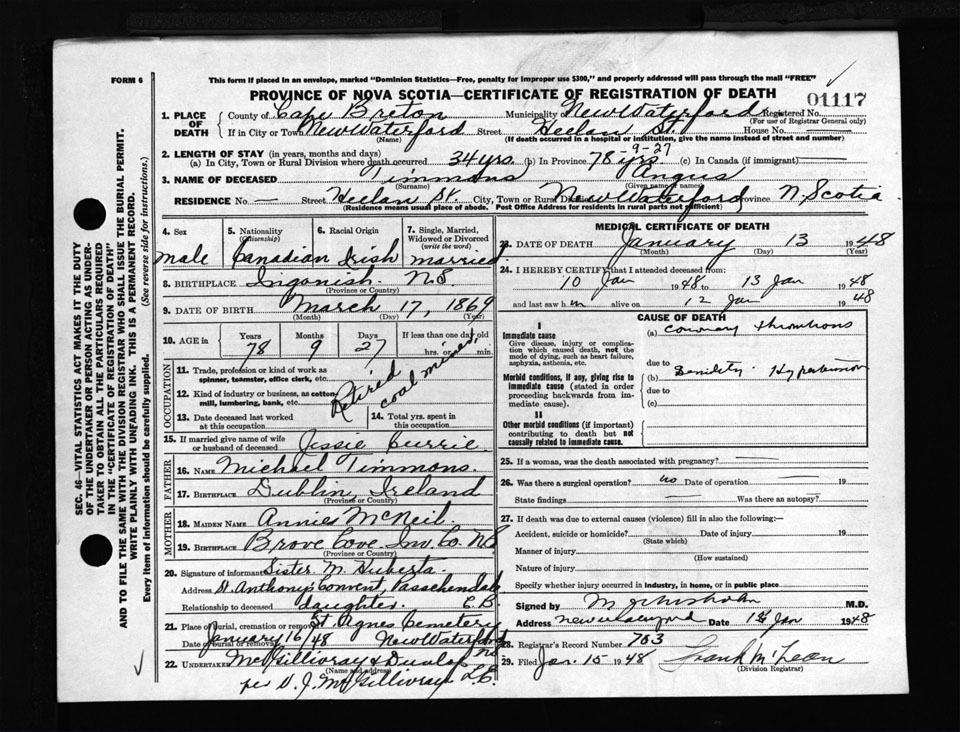 FORM 6
This form if placed in an envelope, marked "Dominion Statistics—Free, penalty for improper use $300," and properly addressed will pass through the mail "FREE"
PROVINCE OF NOVA SCOTIA—CERTIFICATE OF REGISTRATION OF DEATH
01117
1. PLACE OF DEATH
County of Cape Breton Municipality New Waterford Registered No.
(For use of Registrar General only)
If in City or Town New Waterford Street Heelan St. House No. —
(Name) (If death occurred in a hospital or institution, give the name instead of street and number)
2. LENGTH OF STAY (in years, months and days)
(a) In City, Town or Rural Division where death occurred 34 yrs. (b) In Province 78 yrs. -9-27 (c) In Canada (if immigrant) —
3. NAME OF DECEASED Timmons Angus
(Surname) (Given name or names)
RESIDENCE No. — Street Heelan St. City, Town or Rural Division New Waterford Province N. Scotia
(Residence means usual place of abode. Post Office Address for residents in rural parts not sufficient)
4. Sex male
5. Nationality (Citizenship) Canadian
6. Racial Origin Irish
7. Single, Married, Widowed or Divorced (write the word) married
8. BIRTHPLACE Ingonish. N.S.
(Province or Country)
9. DATE OF BIRTH March 17, 1869
(Month) (Day) (Year)
10. AGE in Years Months Days If less than one day old
78 9 27 hrs. or min.
OCCUPATION
11. Trade, profession or kind of work as spinner, teamster, office clerk, etc.
12. Kind of industry or business, as cotton mill, lumbering, bank, etc.
Retired coal miner
13. Date deceased last worked at this occupation
14. Total yrs. spent in this occupation
15. If married give name of wife or husband of deceased Jessie Currie
FATHER
16. NAME Michael Timmons.
17. BIRTHPLACE Dublin, Ireland
(Province or Country)
MOTHER
18. MAIDEN NAME Annie McNeil.
19. BIRTHPLACE Brove Cove Inv. Co. N.S.
(Province or Country)
20. Signature of informant Sister M. Huberta.
Address St. Anthony's Convent, Passchendale
Relationship to deceased daughter. C.B.
21. Place of burial, cremation or removal St Agnes Cemetery
Date of burial or removal January 16/48 New Waterford
22. UNDERTAKER McGillivray & Dunlop N.S.
(Name and address)
per D. J. McGillivray L.E.
MEDICAL CERTIFICATE OF DEATH
23. DATE OF DEATH January 13 1948
(Month) (Day) (Year)
24. I HEREBY CERTIFY that I attended deceased from:
10 Jan 1948 to 13 Jan 1948
and last saw him alive on 12 Jan 1948
CAUSE OF DEATH
I
Immediate cause
Give disease, injury or complication which caused death, not the mode of dying, such as heart failure, asphyxia, asthenia, etc.
(a) coronary thrombosis
due to
Morbid conditions, if any, giving rise to immediate cause (stated in order proceeding backwards from immediate cause).
(b) Senility. Hypertension
due to
(c)
II
Other morbid conditions (if important) contributing to death but not causally related to immediate cause.
25. If a woman, was the death associated with pregnancy? —
26. Was there a surgical operation? no Date of operation — 19
State findings — Was there an autopsy? —
27. If death was due to external causes (violence) fill in also the following:—
Accident, suicide or homicide? Date of injury 19
(State which)
Manner of injury
(How sustained)
Nature of injury
Specify whether injury occurred in industry, in home, or in public place
Signed by M. Chisholm M.D.
Address New Waterford Date Jan 1948
28. Registrar's Record Number 703
29. Filed Jan. 15 1948 Frank McLean
(Division Registrar)
SEC. 46—VITAL STATISTICS ACT MAKES IT THE DUTY
OF THE UNDERTAKER OR PERSON ACTING AS UNDERTAKER
TO OBTAIN ALL THE PARTICULARS REQUIRED
IN THE "CERTIFICATE OF REGISTRATION OF DEATH"
AND TO FILE THE SAME WITH THE DIVISION REGISTRAR WHO SHALL ISSUE THE BURIAL PERMIT.
WRITE PLAINLY WITH UNFADING INK. THIS IS A PERMANENT RECORD.
Every item of information should be carefully supplied. (See reverse side for instructions.)